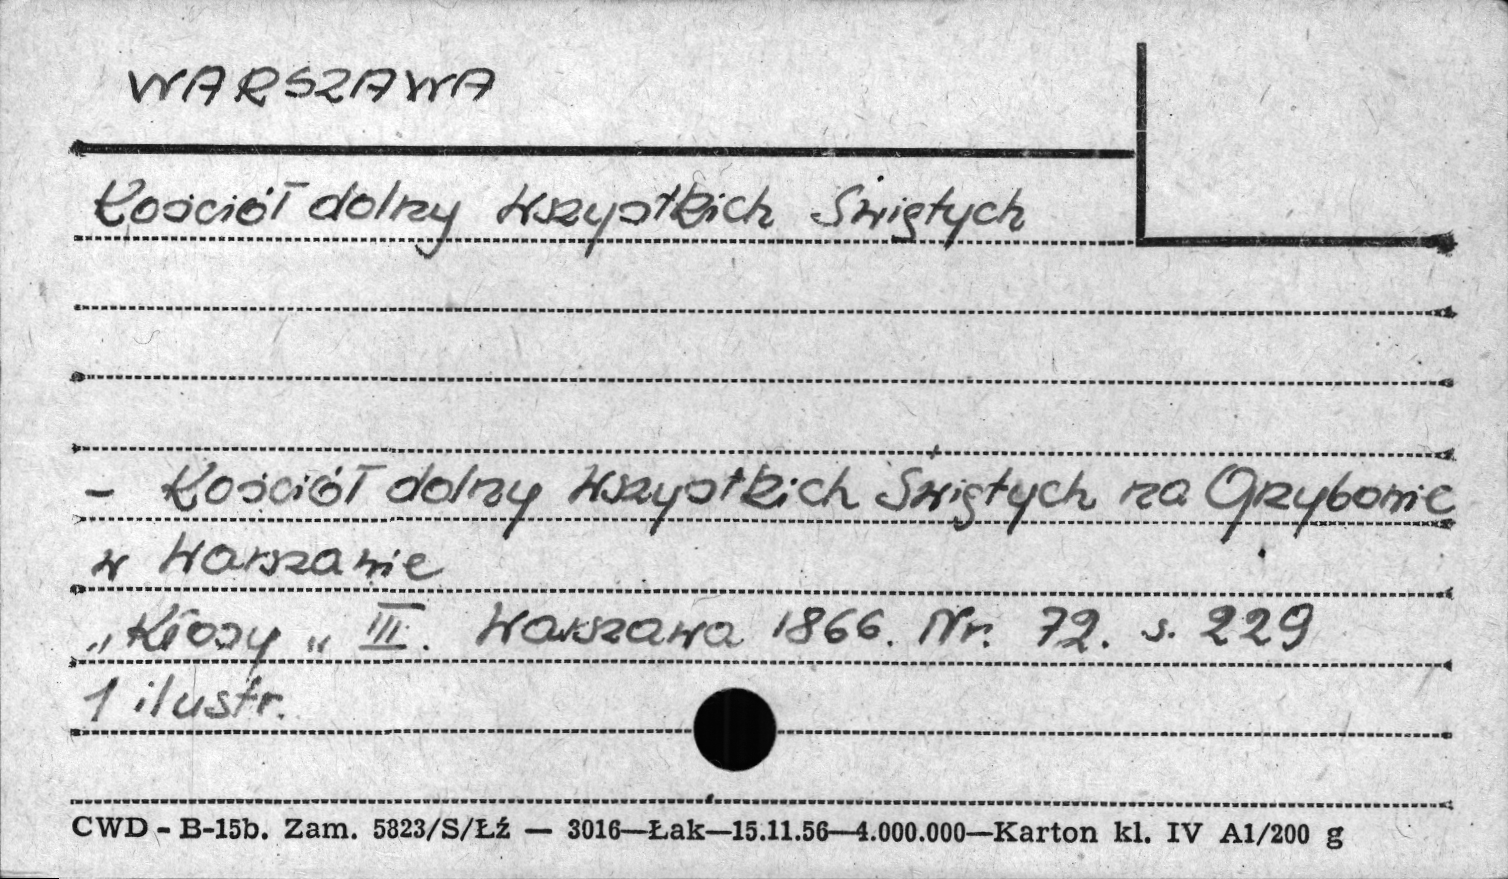 WARSZAWA
Kościół dolny Wszystkich Świętych
- Kościół dolny Wszystkich Świętych na Grzybowie
w Warszawie
„Kłosy" III. Warszawa 1866. Nr. 72. s. 229
1 ilustr.
CWD - B-15b. Zam. 5823/S/Łź — 3016—Łak—15.11.56—4.000.000—Karton kl. IV A1/200 g